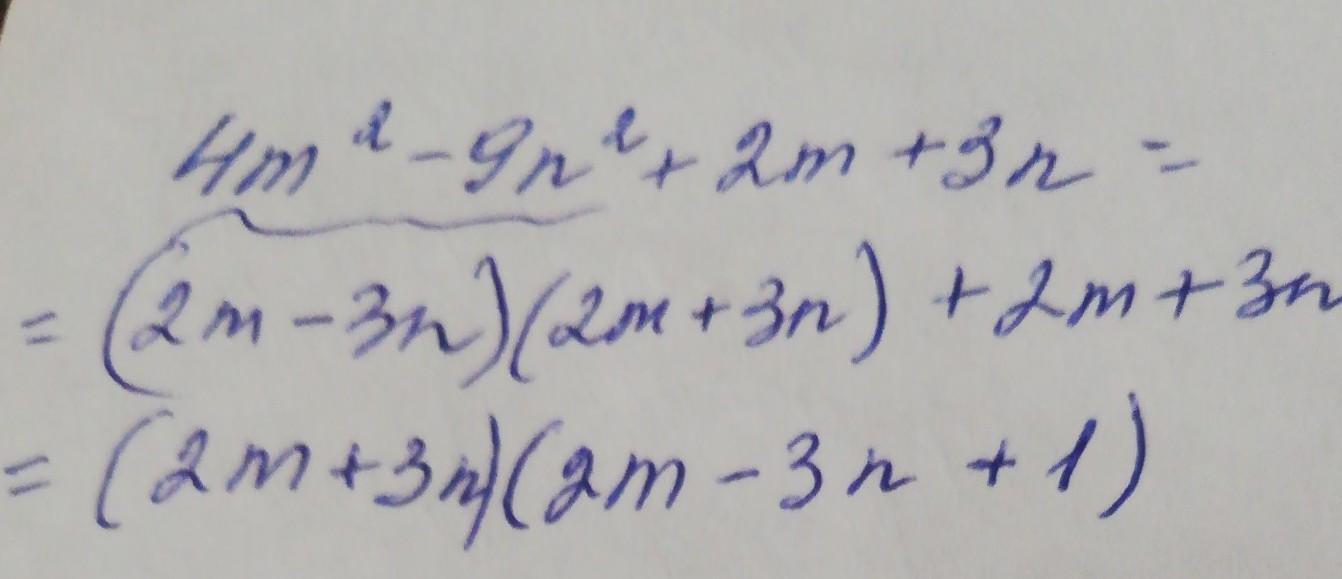 4m² - 9n² + 2m + 3n =
= (2m - 3n)(2m + 3n) + 2m + 3n
= (2m + 3n)(2m - 3n + 1)